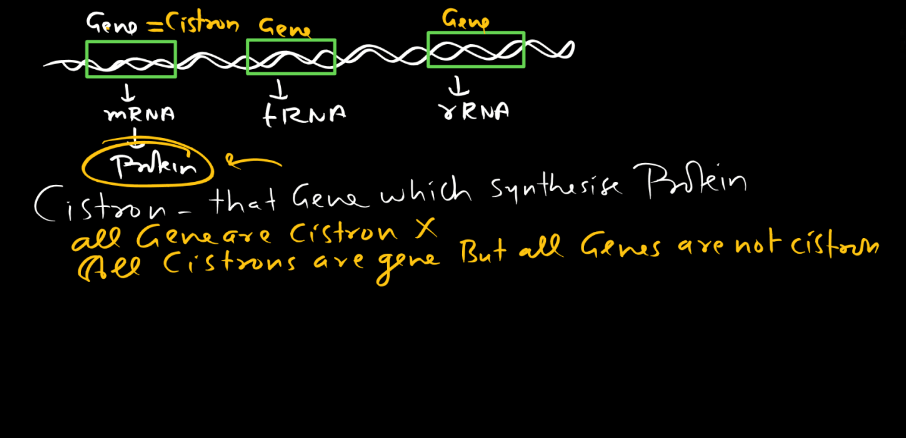 Gene = Cistron Gene Gene
mRNA tRNA rRNA
Protein
Cistron - that Gene which synthesise Protein
all Gene are Cistron X
All Cistrons are gene But all Genes are not cistron